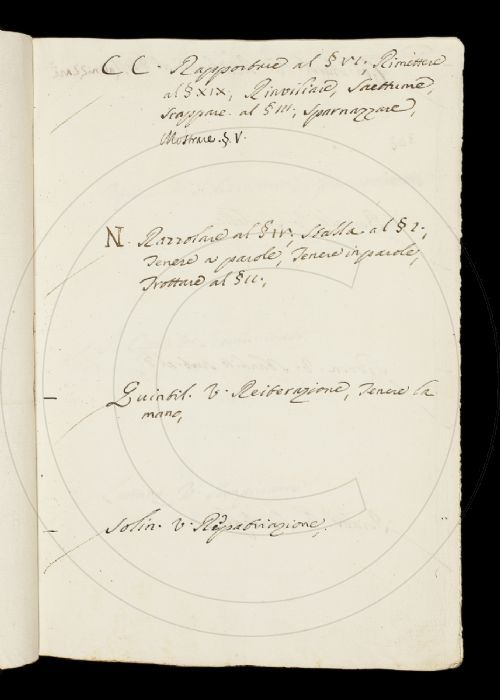 C C. Rapportare al § VI; Rimettere
al § XIX; Rinviliare, Saettume,
Scappare al § III; Sparnazzare,
Mostrare. § V.
N. Razzolare al § IV; Stalla al § I.;
Tenere a parole, Tenere in parole,
Trottare al § II.;
Quintil. V. Reiterazione, Tenere la
mano,
Solin. V. Ripatriazione,